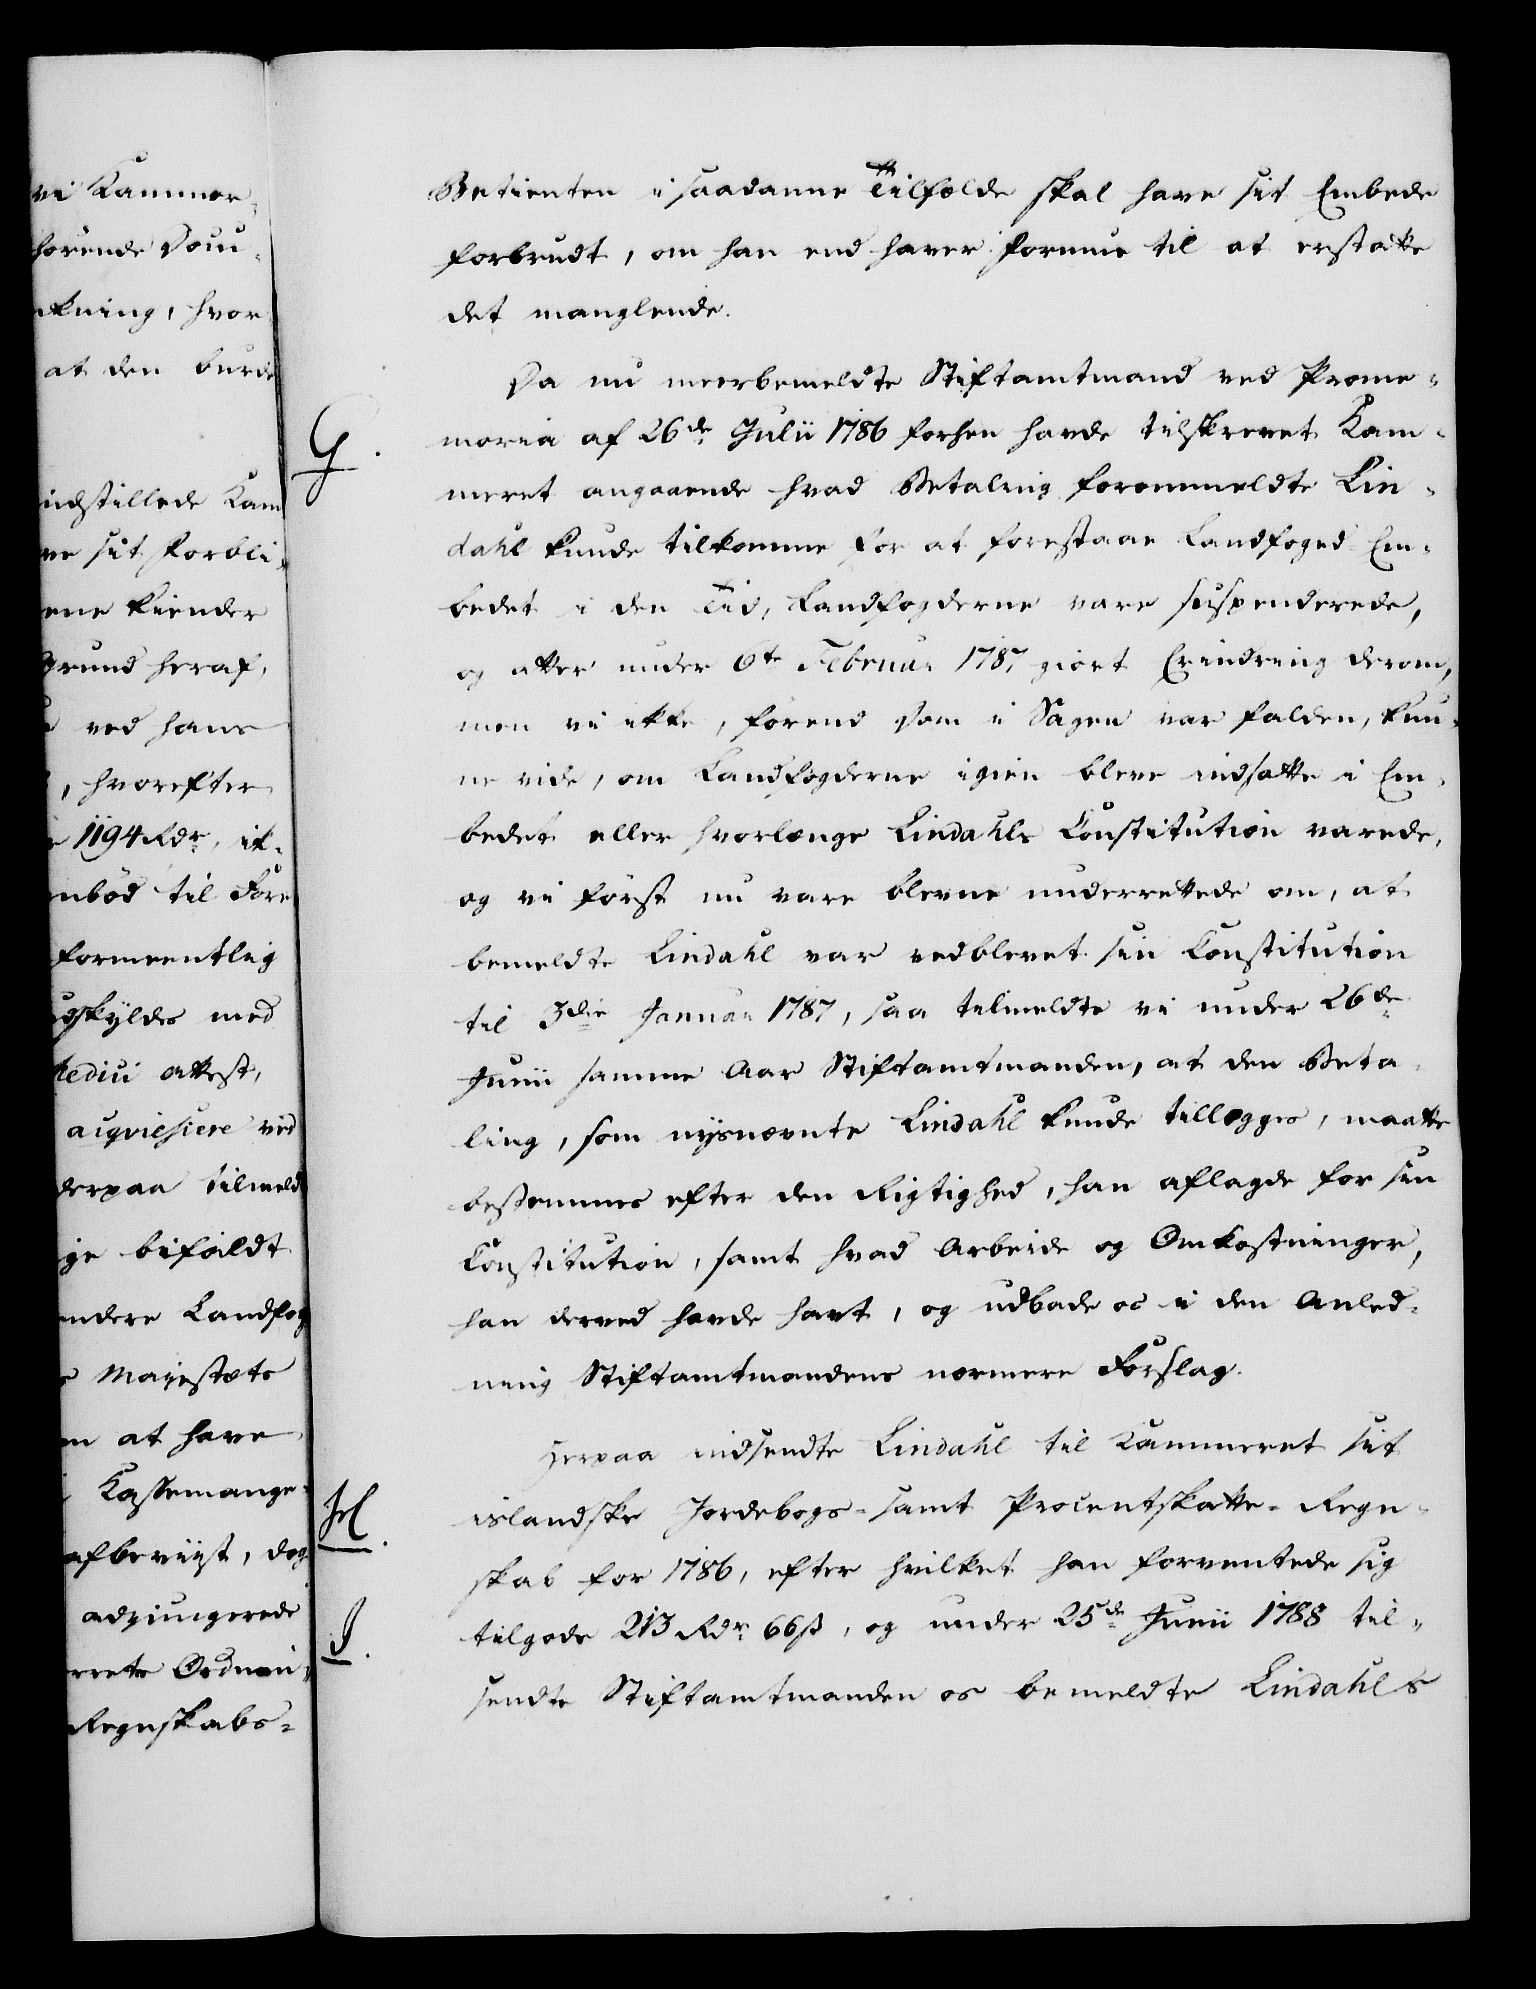 vi Kammer-
hørende Dom-
kning, hvor
at den burde
indstillede Kam
ve sit Forbli-
ene kiender
Grund heraf,
ved hans
, hvorefter
1194 Rdr, ik-
nbød til Fore
formeentlig
gskyldes med
Medici Attest,
acqviescere ved
derpaa tilmeld
ge bifaldt
ndere Landfog
s Majestæts
m at have
Kassemange-
afbeviist, dog
adjungerede
rrets Ordnin-
Regnskabs-
Betienten i saadanne Tilfælde skal have sit Embede
forbrudt, om han end haver Formue til at erstatte
det manglende.
Da nu meerbemeldte Stiftamtmand ved Prome-
G. moria af 26de Julii 1786 forhen havde tilskrevet Kam-
meret angaaende hvad Betaling forommeldte Lin-
dahl kunde tilkomme for at forestaae Landfoged-Em-
bedet i den Tid, Landfogderne vare suspenderede,
og atter under 6te Februar 1787 giort Erindring derom,
men vi ikke, førend Dom i Sagen var falden, kun-
ne vide, om Landfogderne igien bleve indsatte i Em-
bedet eller hvorlænge Lindahls Constitution varede,
og vi først nu vare blevne underrettede om, at
bemeldte Lindahl var vedblevet sin Constitution
til 3die Januar 1787, saa tilmeldte vi under 26de
Junii samme Aar Stiftamtmanden, at den Beta-
ling, som nysnævnte Lindahl kunde tillægges, maatte
bestemmes efter den Rigtighed, han aflagde for sin
Constitution, samt hvad Arbeide og Omkostninger,
han derved havde havt, og udbade os i den Anled-
ning Stiftamtmandens nærmere Forslag.
Herpaa indsendte Lindahl til Kammeret sit
H. islandske Jordebogs- samt Procentskatte-Regn-
skab for 1786, efter hvilket han forventede sig
I. tilgode 213 Rdr 66 ß, og under 25de Junii 1788 til-
sendte Stiftamtmanden os bemeldte Lindahls